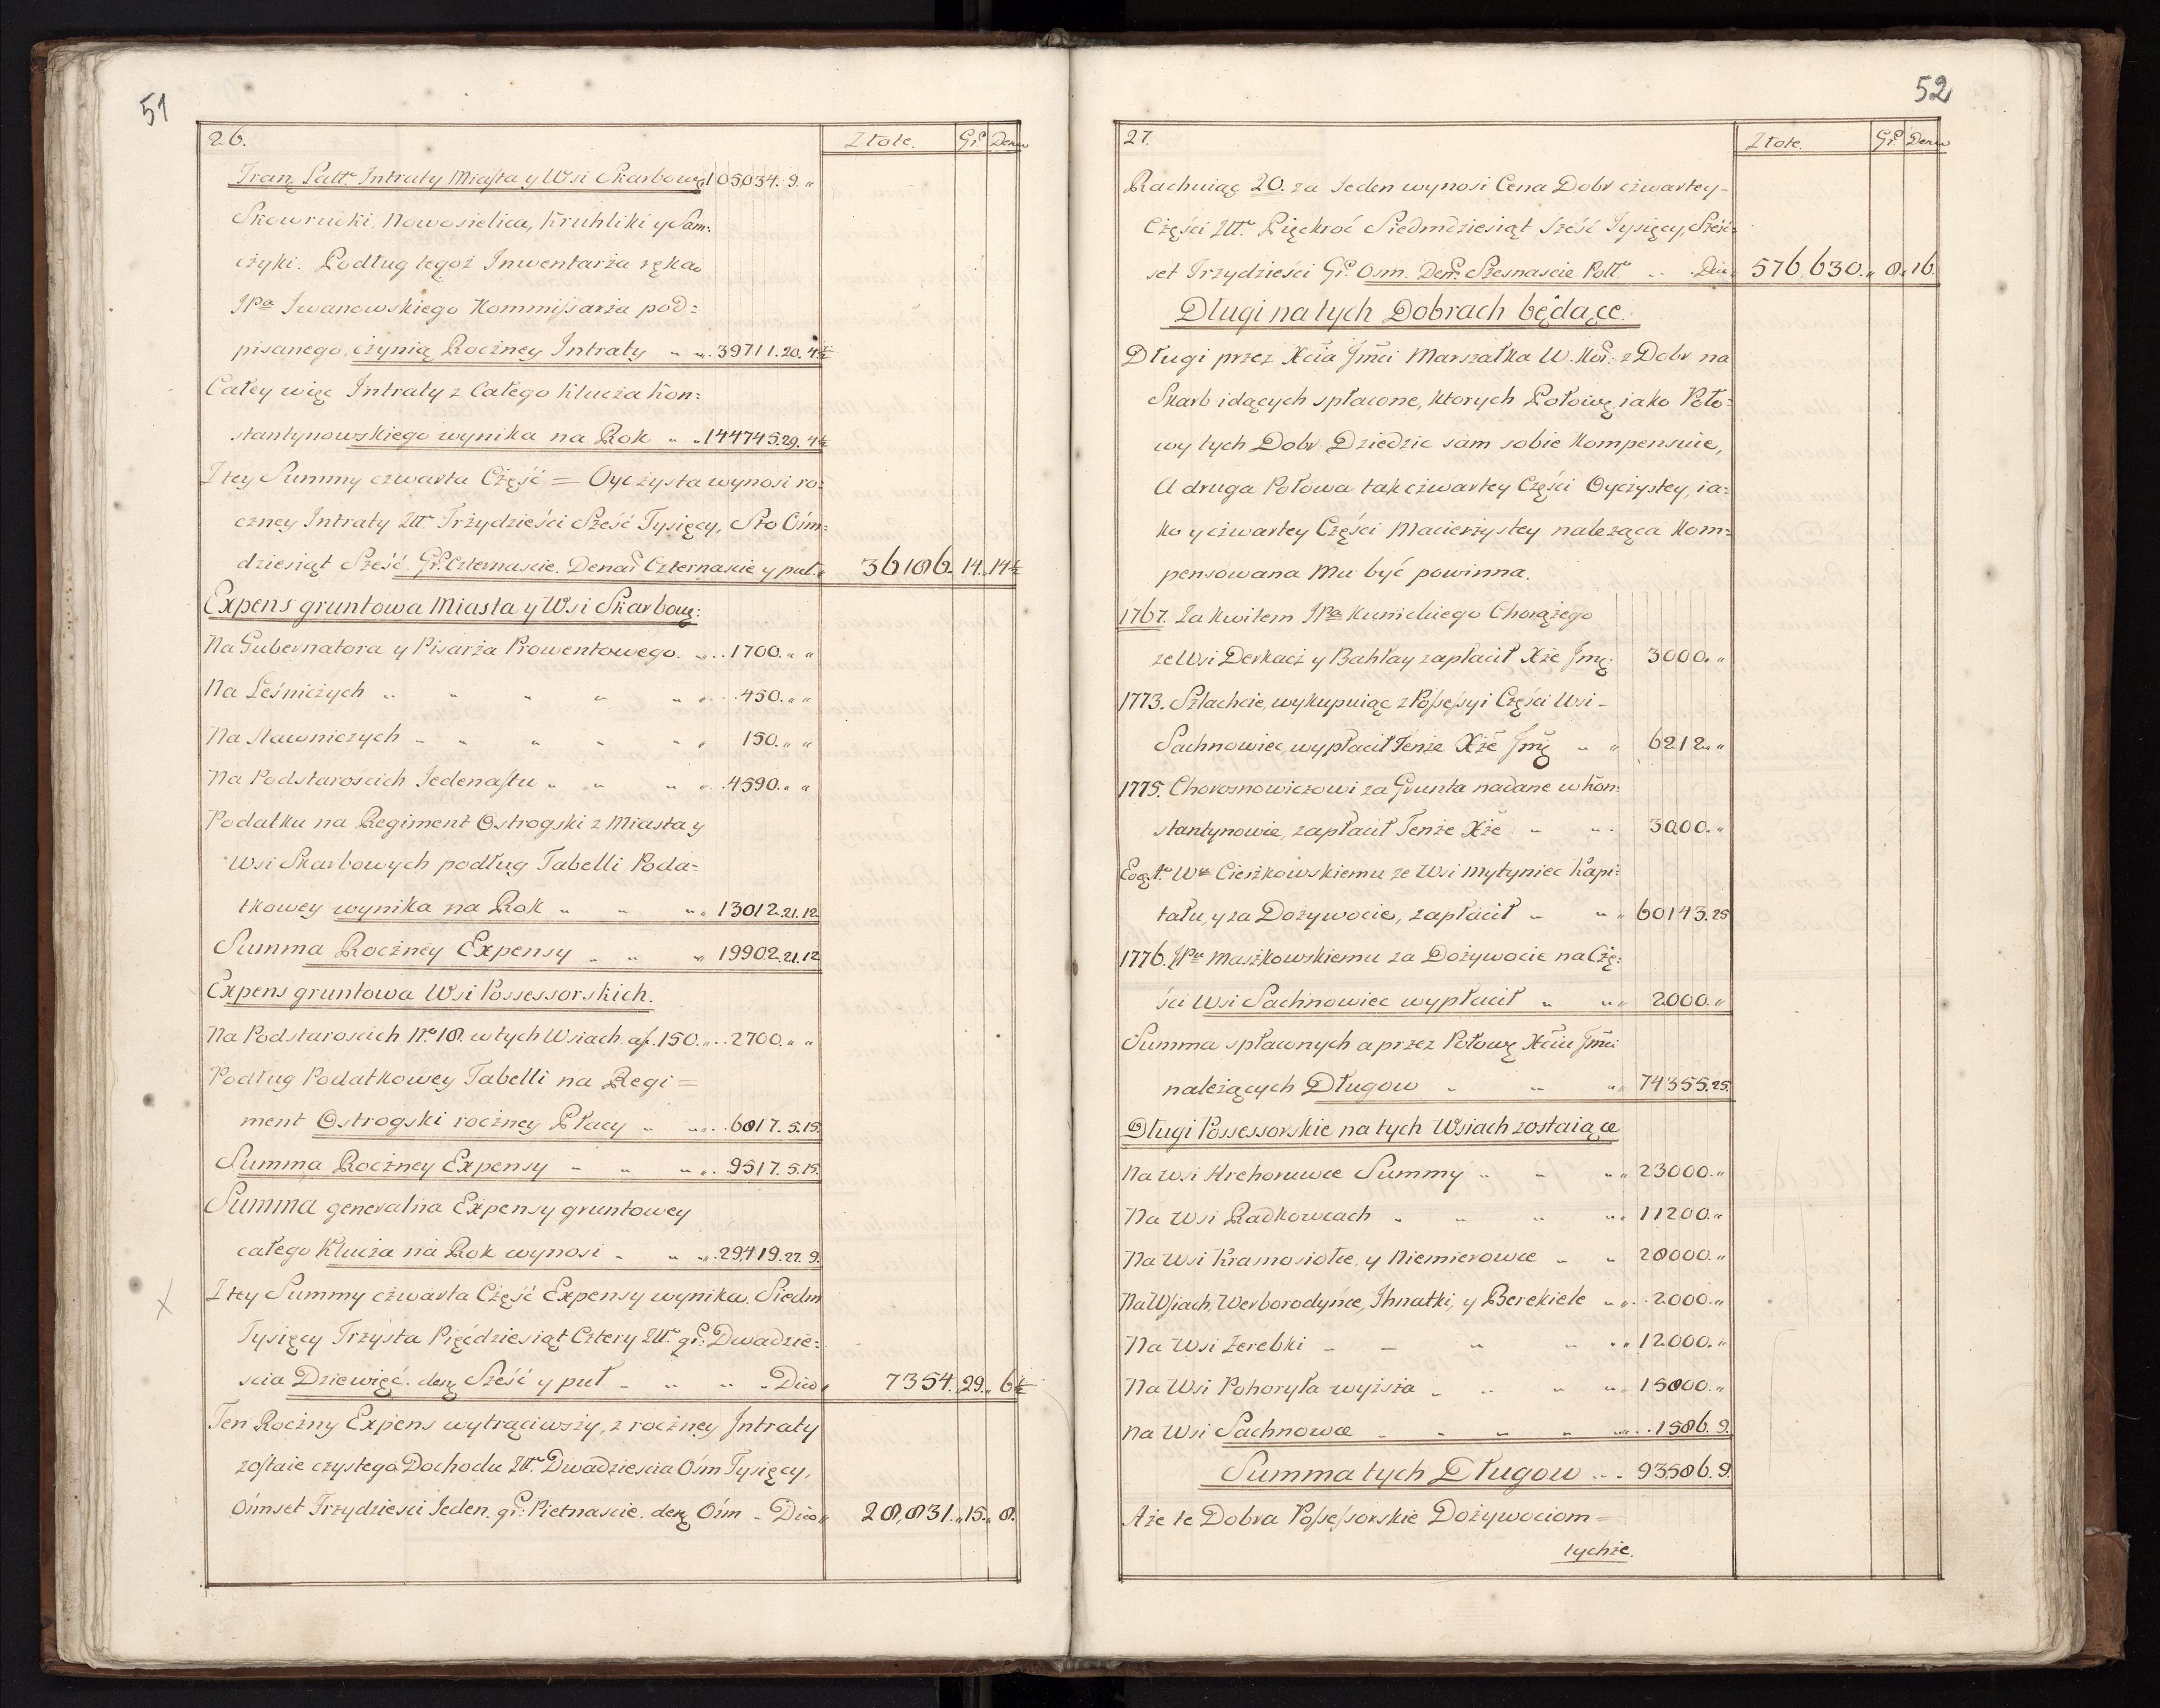 51
26. Złote. Gr. Den.
Tran. Latt. Intraty Miasta y Wsi Skarbowey 105034. 9. „
Skowrudki, Nowosielica, Kruhliki y Sam:
czyki. Podług tegoż Inwentarża ręką
JPa Iwanowskiego Kommissarża pod:
pisanego, czynią Roczney Intraty „ „ 39711. 20. 4½
Całey więc Intraty z Całego Klucża Kon:
stantynowskiego wynika na Rok „ „ 144745. 29. 4½
Z tey Summy czwarta Część = Oyczysta wynosi ro:
czney Intraty Złł. Trżydzieści Sześć Tysięcy, Sto Ośm:
dziesiąt Sześć. Gr. Czternascie. Denar Czternascie y puł. „ 36186. 14. 14½
Expens gruntowa Miasta y Wsi Skarbow:
Na Gubernatora y Pisarża Prowentowego. „ . . 1700. „ „
Na Leśniczych „ „ „ „ „ „ . 450. „ „
Na Stawniczych „ „ „ „ „ „ 150. „ „
Na Podstarościch Iedenastu „ „ „ „ . 4590. „ „
Podatku na Regiment Ostrogski z Miasta y
Wsi Skarbowych podług Tabelli Poda:
tkowey wynika na Rok „ „ „ „ 13012. 21. 12
Summa Roczney Expensy „ „ „ 19902. 21. 12
Expens gruntowa Wsi Possessorskich.
Na Podstaroscich No 18. w tych Wsiach af. 150. „ . . 2700. „ „
Podług Podatkowey Tabelli na Regi =
ment Ostrogski roczney Płacy „ „ . . 6817. 5. 15.
Summa Roczney Expensy „ „ „ „ . 9517. 5. 15.
Summa generalna Expensy gruntowey
całego Klucża na Rok wynosi „ „ „ . 29,419. 27. 9.
Z tey Summy czwarta Część Expensy wynika. Siedm
Tysięcy Trżysta Pięćdziesiąt Cztery Złł. gr: Dwadzie:
scia Dziewięć. den. Sześć y puł „ „ „ „ Dico „ 7354. „ 29. „ 6½
Ten Roczny Expens wytrąciwszy, z roczney Intraty
zostaie czystego Dochodu Złł. Dwadziescia Ośm Tysięcy,
Ośmset Trżydzieści Ieden. gr: Pietnascie. den. Ośm „ Dico „ 28,831. „ 15. „ 8.
52
27. Złote. Gr. Den.
Rachuiąc 20. za Ieden wynosi Cena Dobr czwartey -
Części Złł. Pięckroć Siedmdziesiąt Sześć Tysięcy, Sześć=
set Trzydzieści Gr. Osm. Den. Szesnascie Poll. „ . Dico „ 576,630. „ 8. „ 16.
Długi na tych Dobrach będące.
Długi przez Xcia Jmci Marszałka W. Kor: z Dobr na
Skarb idących spłacone, ktorych Połowę, iako Poło=
wy tych Dobr Dziedzic sam sobie Kompensuie,
A druga Połowa tak czwartey Części Oyczystey, ia=
ko y czwartey Części Macierzystey naleząca Kom=
pensowana Mu być powinna.
1767. Za Kwitem JPa Kunickiego Chorążego
ze Wsi Derkacż y Bahłay zapłacił Xże Jmć. 3000. „
1773. Szlachcie, wykupuiąc z Possessyi Części Wsi -
Sachnowiec, wypłacił Tenże Xże Jmć „ „ 6212. „
1775. Chorosnowiczowi za Grunta nadane w Kon:
stantynowie, zapłacił Tenże Xże „ „ . 3000. „
Eog. Wu Cieszkowskiemu ze Wsi Mytyniec Kapi:
tału, y za Dożywocie, zapłacił „ „ „ 60143. 25
1776. JPu Maszkowskiemu za Dożywocie na Czę:
ści Wsi Sachnowiec wypłacił „ „ „ 2000. „
Summa spłaconych a przez Połowę Xciu Jmci
należących Długow „ „ „ 74355. 25.
Długi Possessorskie na tych Wsiach zostaiące
Na Wsi Hrehorowce Summy „ „ „ „ 23000. „
Na Wsi Radkowcach „ „ „ „ 11200. „
Na Wsi Kramosiołce, y Niemierowce „ „ 28000. „
Na Wsiach, Werborodyńce, Ihnatki, y Berekiele „ „ . 2000. „
Na Wsi Zerebki „ „ „ „ „ „ 12000. „
Na Wsi Pohoryła wyższa „ „ „ „ 15800. „
Na Wsi Sachnowce „ „ „ „ „ . . 1586. 9.
Summa tych Długow . . . 93586. 9.
A że te Dobra Possessorskie Dożywociom =
tychże.